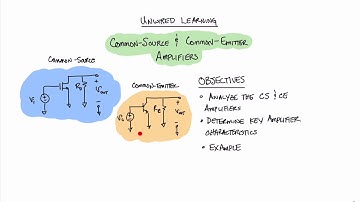 UNWIRED LEARNING
COMMON-SOURCE & COMMON-EMITTER
AMPLIFIERS
COMMON-SOURCE
COMMON-EMITTER
OBJECTIVES
• ANALYZE THE CS & CE
AMPLIFIERS
• DETERMINE KEY AMPLIFIER
CHARACTERISTICS
• EXAMPLE
Vi
RD
Vout
Vi
Vout